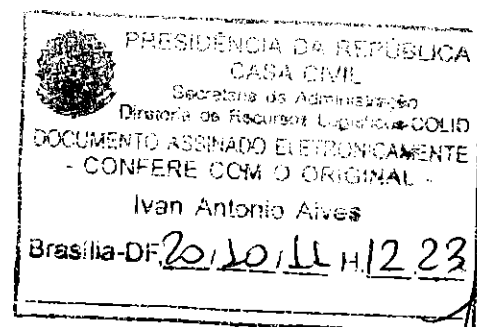 PRESIDÊNCIA DA REPÚBLICA
CASA CIVIL
Secretaria de Administração
Diretoria de Recursos Logísticos-COLID
DOCUMENTO ASSINADO ELETRONICAMENTE
- CONFERE COM O ORIGINAL -
Ivan Antonio Alves
Brasília-DF, 20/10/11 H 12 23